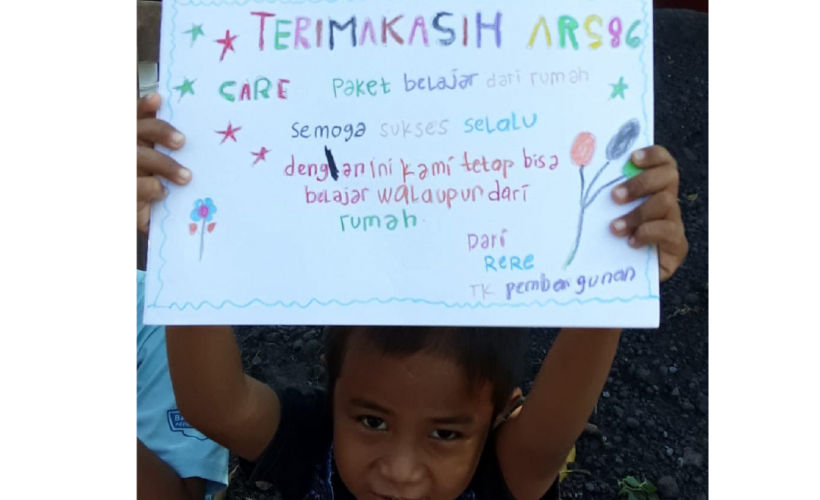 TERIMAKASIH ARS86
CARE paket belajar dari rumah
semoga sukses selalu
dengan ini kami tetap bisa
belajar walaupun dari
rumah.
Dari
RERE
TK pembangunan